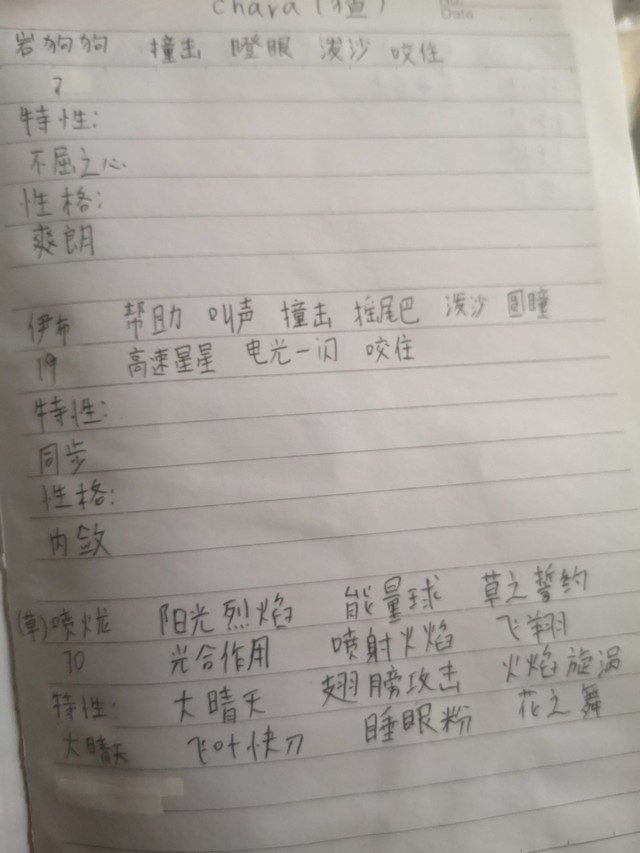 chara(
No.
Date
岩狗狗 撞击 瞪眼 泼沙 咬住
7
特性:
不屈之心
性格:
爽朗
伊布 帮助 叫声 撞击 摇尾巴 泼沙 圆瞳
19 高速星星 电光一闪 咬住
特性:
同步
性格:
内敛
(草)喷火龙 阳光烈焰 能量球 草之誓约
70 光合作用 喷射火焰 飞翔
特性: 大晴天 翅膀攻击 火焰旋涡
大晴天 飞叶快刀 睡眠粉 花之舞